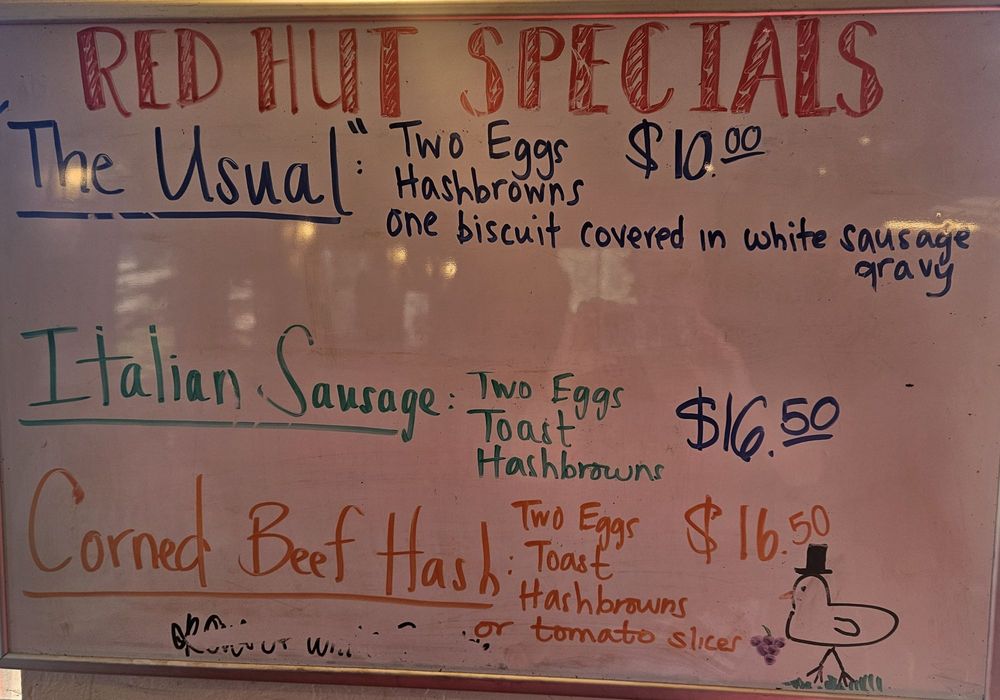 RED HUT SPECIALS
"The Usual": Two Eggs $10.00
Hashbrowns
one biscuit covered in white sausage
gravy
Italian Sausage: Two Eggs
Toast $16.50
Hashbrowns
Corned Beef Hash: Two Eggs $16.50
Toast
Hashbrowns
or tomato slicer